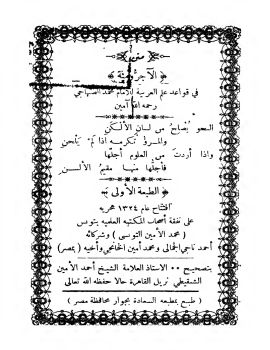 متن
الآجرومية
في قواعد علم العربية للإمام محمد الصنهاجي
رحمه الله آمين
النحو يصلح من لسان الألكن
والمرء تكرمه اذا لم يلحن
واذا أردت من العلوم أجلها
فأجلها منها مقيم الألسن
الطبعة الأولى
افتتاح عام ١٣٢٤ هجرية
على نفقة أصحاب المكتبة العلمية بتونس
( محمد الأمين التونسي ) وشركائه
أحمد ناجي الجمالي ومحمد أمين الخانجي وأخيه ( بمصر )
بتصحيح ٠٠ الاستاذ العلامة الشيخ أحمد الأمين
الشنقيطي نزيل القاهرة حالا حفظه الله تعالى
( طبع بمطبعه السعادة بجوار محافظة مصر )